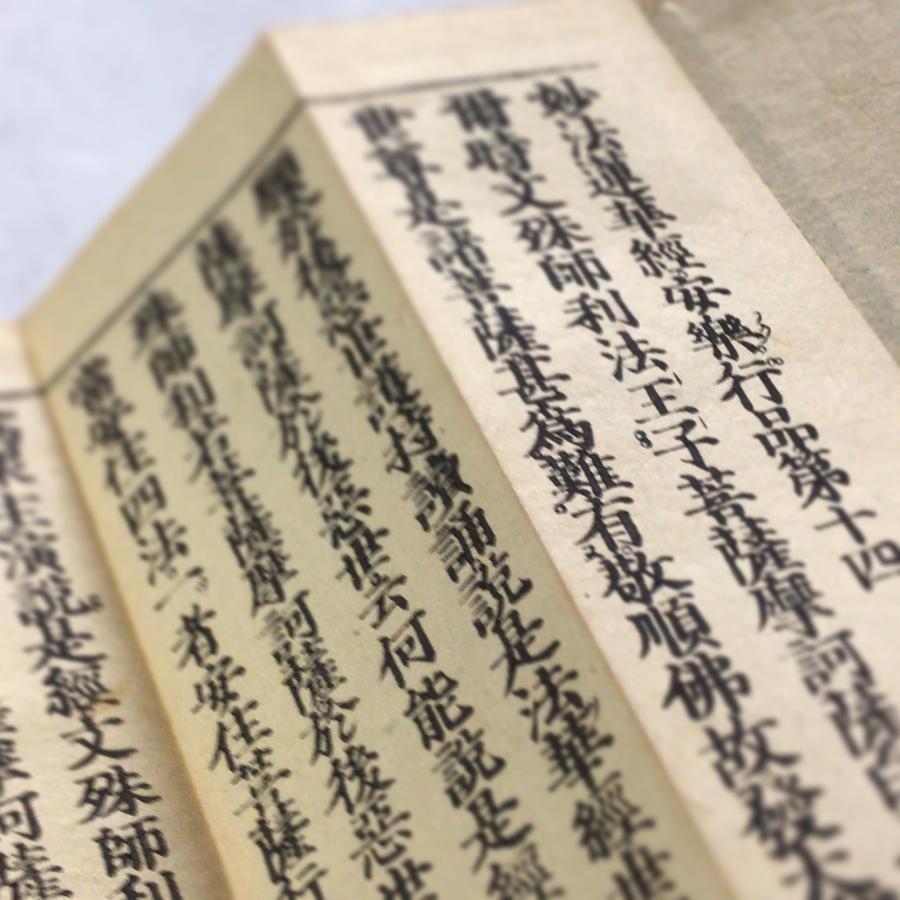 妙法蓮華經安樂行品第十四
爾時文殊師利法王子菩薩摩訶薩白
世尊是諸菩薩甚爲難有敬順佛故發大
願於後惡世護持讀誦說是法華經世
薩摩訶薩於後惡世云何能說是經
殊師利若菩薩摩訶薩於後惡世
當安住四法一者安住菩薩行
演說是經文殊師利
摩訶薩